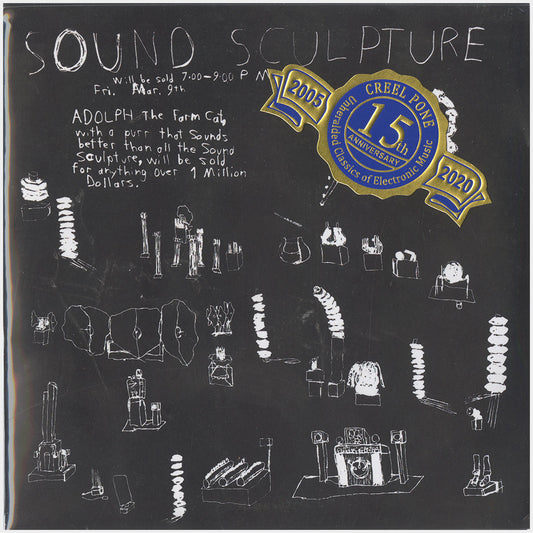 SOUND SCULPTURE
will be sold 7:00-9:00 P M
Fri. Mar. 9th
ADOLPH The Farm Cat,
with a purr that Sounds
better than all the Sound
Sculpture, will be sold
for anything over 1 Million
Dollars.
2005
CREEL PONE
15th
ANNIVERSARY
Unheralded Classics of Electronic Music
2020